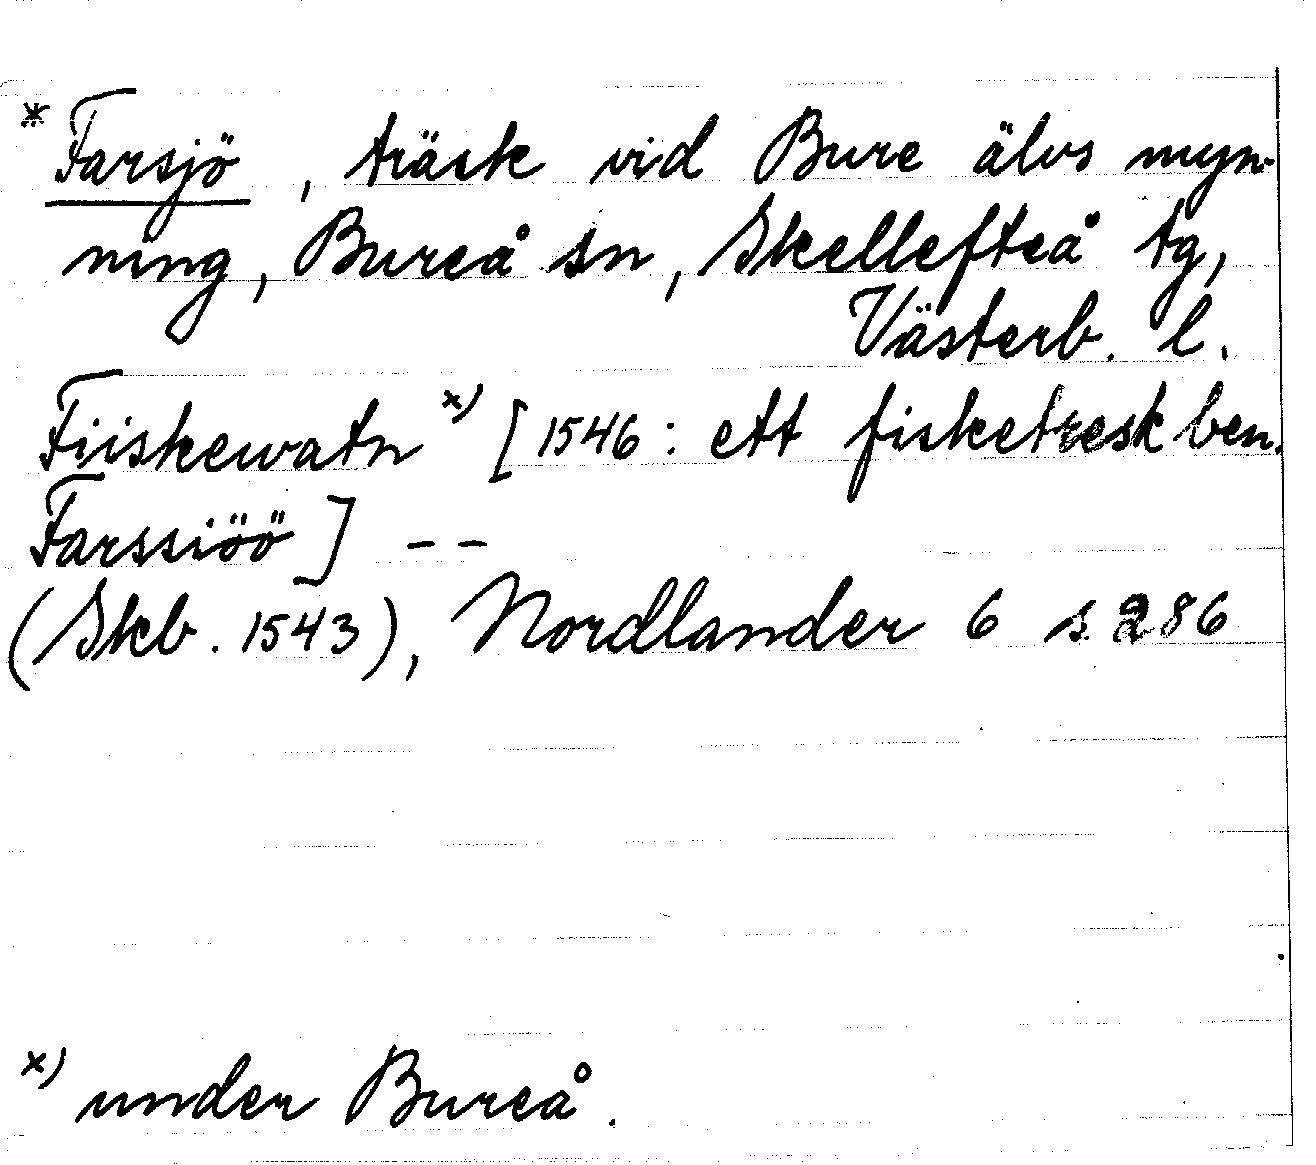 * Farsjö, träsk vid Bure älvs myn-
ning, Bureå sn, Skellefteå tg,
Västerb. l.
Fiiskewatn x) [1546: ett fisketresk ben.
Farssiöö] --
(Skb. 1543), Nordlander 6 s. 286
x) under Bureå.